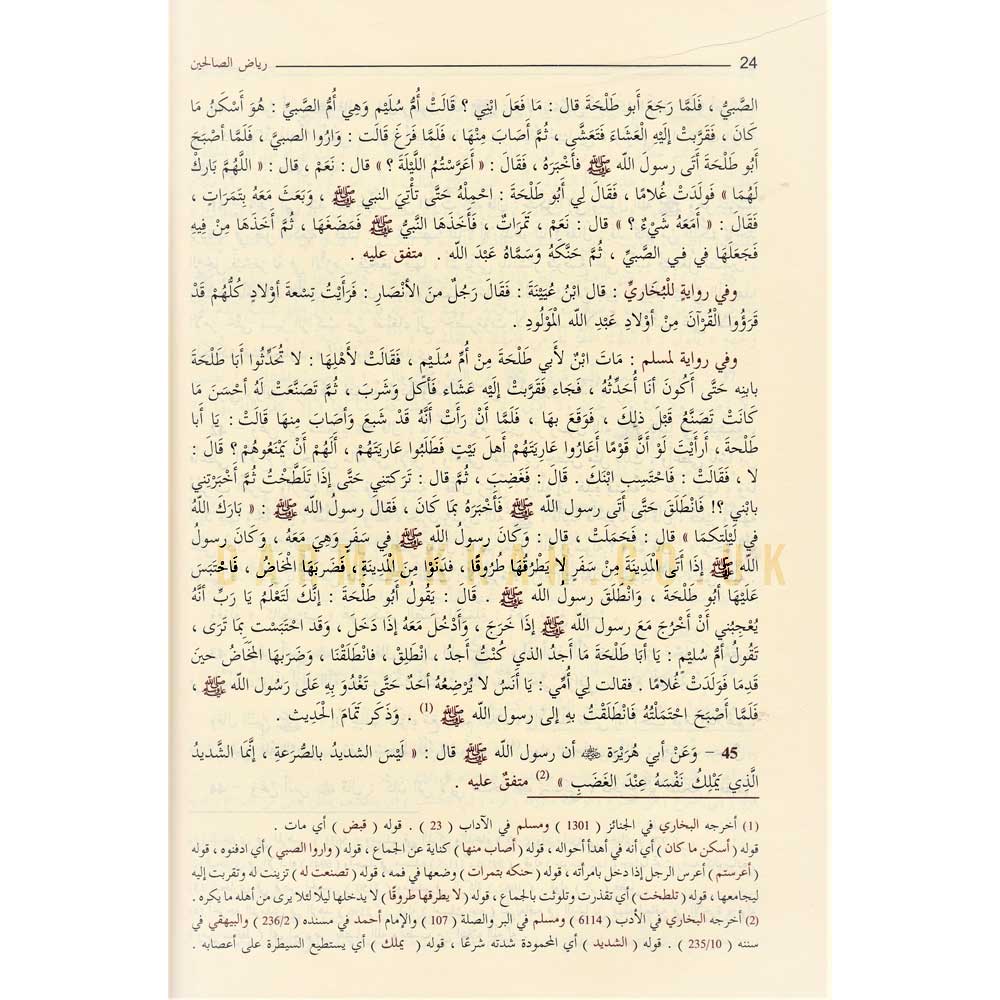 24 رياض الصالحين
الصَّبيُّ ، فَلَمَّا رَجَعَ أَبو طَلْحَةَ قال : مَا فَعَلَ ابْنِي ؟ قَالَتْ أُمُّ سُلَيْم وَهِيَ أُمُّ الصَّبيِّ : هُوَ أَسْكَنُ مَا
كَانَ ، فَقَرَّبَتْ إلَيْهِ الْعَشَاءَ فَتَعَشَّى ، ثُمَّ أَصَابَ مِنْهَا ، فَلَمَّا فَرَغَ قَالَت : وَارُوا الصبيَّ ، فَلَمَّا أصْبَحَ
أَبُو طَلْحَةَ أَتَى رسولَ اللَّه ﷺ فَأَخْبَرَهُ ، فَقَالَ : « أَعَرَّسْتُمُ اللَّيْلَةَ ؟ » قال : نَعَمْ ، قال : « اللَّهمَّ بَارِكْ
لَهُمَا » فَولَدَتْ غُلامًا ، فَقَالَ لِي أَبُو طَلْحَةَ : احْمِلْهُ حَتَّى تَأْتِيَ النبي ﷺ ، وَبَعَثَ مَعَهُ بِتَمَرَاتٍ ،
فَقَالَ : « أَمَعَهُ شَيْءٌ ؟ » قال : نَعَمْ ، تَمَرَاتٌ ، فَأَخَذَهَا النَّبيُّ ﷺ فَمَضَغَهَا ، ثُمَّ أَخَذَهَا مِنْ فِيهِ
فَجَعَلَهَا في فـي الصَّبيِّ ، ثُمَّ حَنَّكَهُ وَسَمَّاهُ عَبْدَ اللَّه . متفق عليه .
وفي روايةٍ للْبُخَاريِّ : قال ابْنُ عُيَيْنَةَ : فَقَالَ رَجُلٌ منَ الأنْصَارِ : فَرَأَيْتُ تِسْعةَ أوْلادٍ كُلُّهُمْ قَدْ
قَرَؤُوا الْقُرْآنَ مِنْ أوْلادِ عَبْدِ اللَّه الْمَوْلُودِ .
وفي رواية لمسلم : مَاتَ ابْنٌ لأَبي طَلْحَةَ مِنْ أُمِّ سُلَـيْمٍ ، فَقَالَتْ لأَهْلِهَا : لا تُحَدِّثُوا أَبَا طَلْحَةَ
بابنِه حَتَّى أَكُونَ أنَا أُحَدِّثُهُ ، فَجَاء فَقَرَّبتْ إلَيْه عَشَاء فَأكلَ وَشَربَ ، ثُمَّ تَصَنَّعَت لَهُ أحْسَنَ مَا
كَانَتْ تَصَنَّعُ قَبْلَ ذلِكَ ، فَوَقَعَ بهَا ، فَلَمَّا أَنْ رَأَتْ أنَّهُ قَدْ شَبِعَ وَأصَابَ منهَا قَالَتْ : يَا أَبا
طَلْحة ، أرأيْتَ لَوْ أَنَّ قَوْمًا أَعَارُوا عَارِيَتَهُمْ أهلَ بَيْتٍ فَطَلَبُوا عَاريَتَهُمْ ، أَلَهُمْ أَنْ يَمْنَعُوهُمْ ؟ قَالَ :
لا ، فَقَالَتْ : فَاحْتَسِب ابْنَكَ . قَالَ : فَغَضِبَ ، ثُمَّ قال : تَركتني حَتَّى إذَا تَلَطَّخْتُ ثُمَّ أَخْبَرْتِني
بابْني ؟! فَانْطَلَقَ حَتَّى أَتَى رسولَ اللَّه ﷺ فَأَخْبَرَهُ بمَا كَانَ ، فَقالَ رسولُ اللَّه ﷺ : « بَارَكَ اللَّهُ
في لَيْلَتِكمَا » قال : فَحَمَلَتْ ، قال : وَكَانَ رسولُ اللَّه ﷺ في سَفَرٍ وَهِيَ مَعَهُ ، وَكَانَ رسولُ
اللَّه ﷺ إذَا أَتَى الْمَدينَةَ مِنْ سَفَرٍ لا يَطْرُقُهَا طُرُوقًا ، فدَنَوْا مِنَ الْمَدينَةِ ، فَضَربَهَا الْمَخَاضُ ، فَاحْتَبَسَ
عَلَيْهَا أبُو طَلْحَةَ ، وَانْطَلَقَ رسولُ اللَّه ﷺ . قال : يَقُولُ أَبُو طَلْحَةَ : إنَّكَ لَتَعْلَمُ يَا رَبِّ أنَّهُ
يُعْجِبُني أَنْ أخْرُجَ مَعَ رسولِ اللَّه ﷺ إذَا خَرَجَ ، وَأدْخُلَ مَعَهُ إذَا دَخَلَ ، وَقَد احْتَبَسْت بِمَا تَرَى ،
تَقُولُ أمُّ سُليْمٍ : يَا أبَا طَلْحَةَ مَا أَجدُ الذي كُنْتُ أَجدُ ، انْطَلِقْ ، فانْطَلَقْنَا ، وَضَربَهَا الْمَخَاضُ حينَ
قَدِمَا فَوَلَدَتْ غُلامًا . فقالت لي أُمِّي : يَا أَنَسُ لا يُرْضِعُهُ أحَدٌ حَتَّى تَغْدُوَ بِهِ عَلَى رَسُولِ اللَّه ﷺ ،
فَلَمَّا أصْبَحَ احْتَمَلْتُهُ فَانْطَلَقْتُ بهِ إلى رسولِ اللَّه ﷺ (1) . وَذَكر تَمَامَ الْحَدِيث .
45 – وَعَنْ أبي هُرَيْرَةَ ﷺ أن رسولَ اللَّه ﷺ قال : « لَيْسَ الشديدُ بالصُّرَعةِ ، إنَّمَا الشَّديدُ
الَّذي يَمْلِكُ نَفْسَهُ عِنْدَ الغَضَبِ » (2) متفقٌ عليه .
(1) أخرجه البخاري في الجنائز ( 1301 ) ومسلم في الآداب ( 23 ) . قوله ( قبض ) أي مات .
قوله ( أسكن ما كان ) أي أنه في أهدأ أحواله ، قوله ( أصاب منها ) كناية عن الجماع ، قوله ( واروا الصبي ) أي ادفنوه ، قوله
( أعرستم ) أعرس الرجل إذا دخل بامرأته ، قوله ( حنكه بتمرات ) وضعها في فمه ، قوله ( تصنعت له ) تزينت له وتقربت إليه
ليجامعها ، قوله ( تلطخت ) أي تقذرت وتلوثت بالجماع ، قوله ( لا يطرقها طروقًا ) لا يدخلها ليلًا لئلا يرى من أهله ما يكره .
(2) أخرجه البخاري في الأدب ( 6114 ) ومسلم في البر والصلة ( 107 ) والإمام أحمد في مسنده ( 236/2 ) والبيهقي في
سننه ( 235/10 ) . قوله ( الشديد ) أي المحمودة شدته شرعًا ، قوله ( يملك ) أي يستطيع السيطرة على أعصابه .
DARMAKKAH.CO.UK